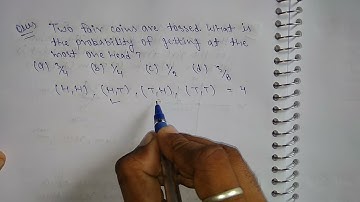 Ques Two fair coins are tossed. What is
the probability of getting at the
most one head?
(a) 3/4 (b) 1/4 (c) 1/2 (d) 3/8
(H,H), (H,T), (T,H), (T,T) = 4